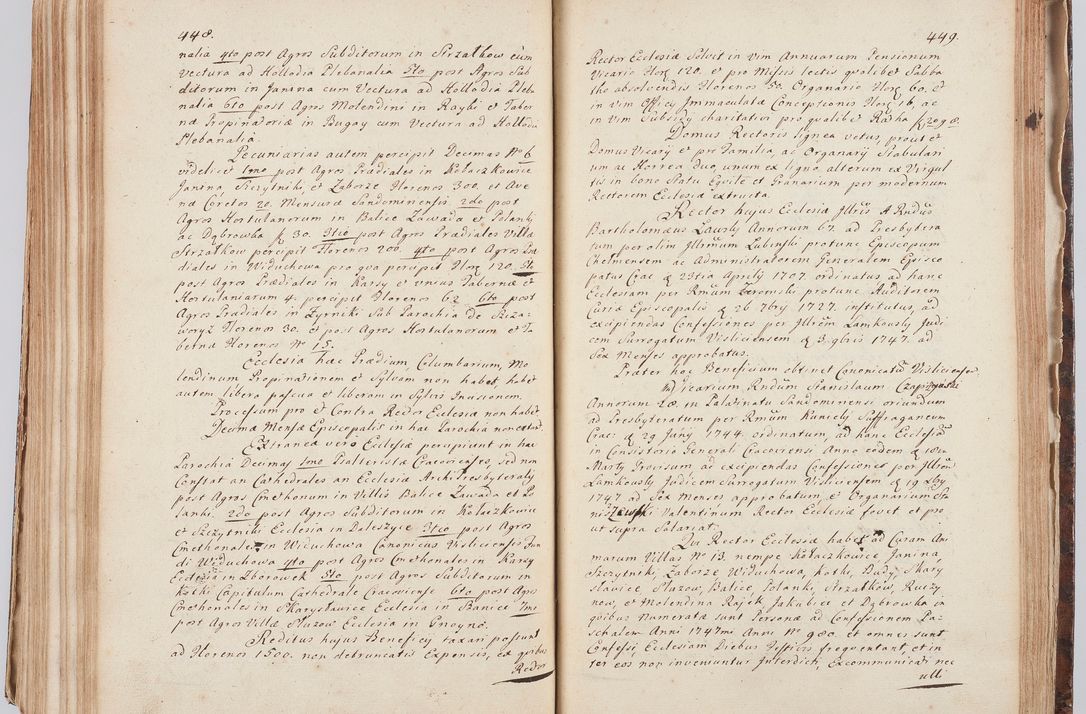 448.
nalia 4to post Agros Subditorum in Strzałkow cum
Vectura ad Hollodia Plebanalia 5to post Agros Sub
ditorum in Janina cum Vectura ad Hollodia Pleba
nalia 6to post Agros Molendini in Rayki et Taber
næ Propinatoriæ in Bugay cum Vectura ad Hollodia
Plebanalia.
Pecuniarias autem percipit Decimas No 6
videlicet 1mo post Agros Prædiales in Kołaczkowice
Janina Szczytniki, et Zaborze Florenos 300. et Ave
næ Coretos 20. Mensuræ Sandomiriensis 2do post
Agros Hortulanorum in Balice Zawada et Polanki
ac Dąbrowka f 30. 3tio post Agros Prædiales Villæ
Strzałkow percipit Florenos 200. 4to post Agros Præ
diales in Widuchowa pro qua percipit Flor 120. 5t.
post Agros Prædiales in Karsy et unius Tabernæ et
Hortulaniarum 4. percipit Florenos 62 6to post
Agros Prædiales in Zyrniki Sub Parochia de Szcza-
woryż Florenos 30. et post Agros Hortulanorum et Ta
bernæ Florenos No 15.
Ecclesia hæc Prædium Columbarium, Mo
lendinum Propinationem et Sylvam non habet, habet
autem libera pascua et liberam in Sylvis Invasionem.
Processum pro et Contra Rector Ecclesiæ non habet
Decimæ Mensæ Episcopalis in hac Parochia non extant.
Extraneæ vero Ecclesiæ percipiunt in hac
Parochia Decimas 1mo Psalteristæ Cracovienses, sed non
Constat an Cathedrales an Ecclesiæ Archi Presbyteralis
post Agros Cmethonum in Villis Balice Zawada et Po
lanki. 2do post Agros Subditorum in Kołaczkowice
et Szczytniki Ecclesia in Daleszyce 3tio post Agros
Cmethonales in Widuchowa Canonicus Visliciensis Fun
di Widuchowa 4to post Agros Cmethonales in Karsy
Ecclesia in Zborowek 5to post Agros Subditorum in
Kotki Capitulum Cathedrale Cracoviense 6to post Agros
Cmethonales in Skarysławice Ecclesia in Banice 7mo
post Agros Villæ Sluzow Ecclesia in Gnoyno.
Reditus hujus Beneficij taxari possunt
ad Florenos 1500. non detruncatis Expensis, ex quibus
Rector
449.
Rector Ecclesiæ Solvit in vim Annuarum Pensionum
Vicario Flor 120. et pro Missis lectis qvolibet Sabba
tho absolvendis Florenos 50. Organario Flor 60. et
in vim Officij Immaculatæ Conceptionis Flor 16, ac
in vim Subsidij charitativi pro qvolibet Ratha f 20 g 8.
Domus Rectoris lignea vetus, prout et
Domus Vicarij et pro Familia, ac Organarij Stabulari
um ac Horrea duo, unum ex ligno, alterum ex Virgul
tis in bono Statu Eqvile et Granarium per modernum
Rectorem Ecclesiæ extructa.
Rector hujus Ecclesiæ Jllris A Rndus
Bartholomæus Laurky Annorum 67. ad Presbytera
tum per olim Jllrmum Łubinski protunc Episcopum
Chelmensem ac Administratorem Generalem Episco
patus Crac d 23tia Aprilij 1707. ordinatus ad hanc
Ecclesiam per Rmum Żeromski protunc Auditorem
Curiæ Episcopalis d 26 7bris 1727. institutus, ad
excipiendas Confessiones per Jllrem Łamkowsky Judi
cem Surrogatum Visliciensem d 3. 9bris 1747. ad
Sex Menses approbatus.
Præter hoc Beneficium obtinet Canonicatum Visliciensem
Vicarium Rndum Stanislaum
Annorum 28. in Palatinatu Sandomiriensi oriundum
ad Presbyteratum per Rmum Kunicky Suffraganeum
Crac: d 29 Janij 1744. ordinatum, ad hanc Ecclesiam
in Consistorio General Cracoviensi Anno eodem d 10ma
Marty Provisum ad excipiendas Confessiones per Jllrem
Łamkowsky Judicem Surrogatum Visliciensem d 19 Xbris
1747 ad Sex Menses approbatum et Organarium
Valentinum Rector Ecclesiæ fovet et pro
ut supra Salariat.
Qui Rector Ecclesiæ habet ad Curam Ani
marum Villas No 13. nempe Kołaczkowice Janina
Szczytniki, Zaborze Widuchowa, Kotki, Dudy, Skary
sławice Sluzow, Balice, Polanki, Strzałków, Ruczy
now, et Molendina Rajek, Jakubice et Dąbrowka in
qvibus Numeratæ sunt Personæ ad Confessionem Pa-
schalem Anni 1747mi Anni No 980. et omnes sunt
Confessi, Ecclesiam Diebus Festivis freqventant, et in
ter eos non inveniuntur Interdicti, Excommunicati nec
ulli